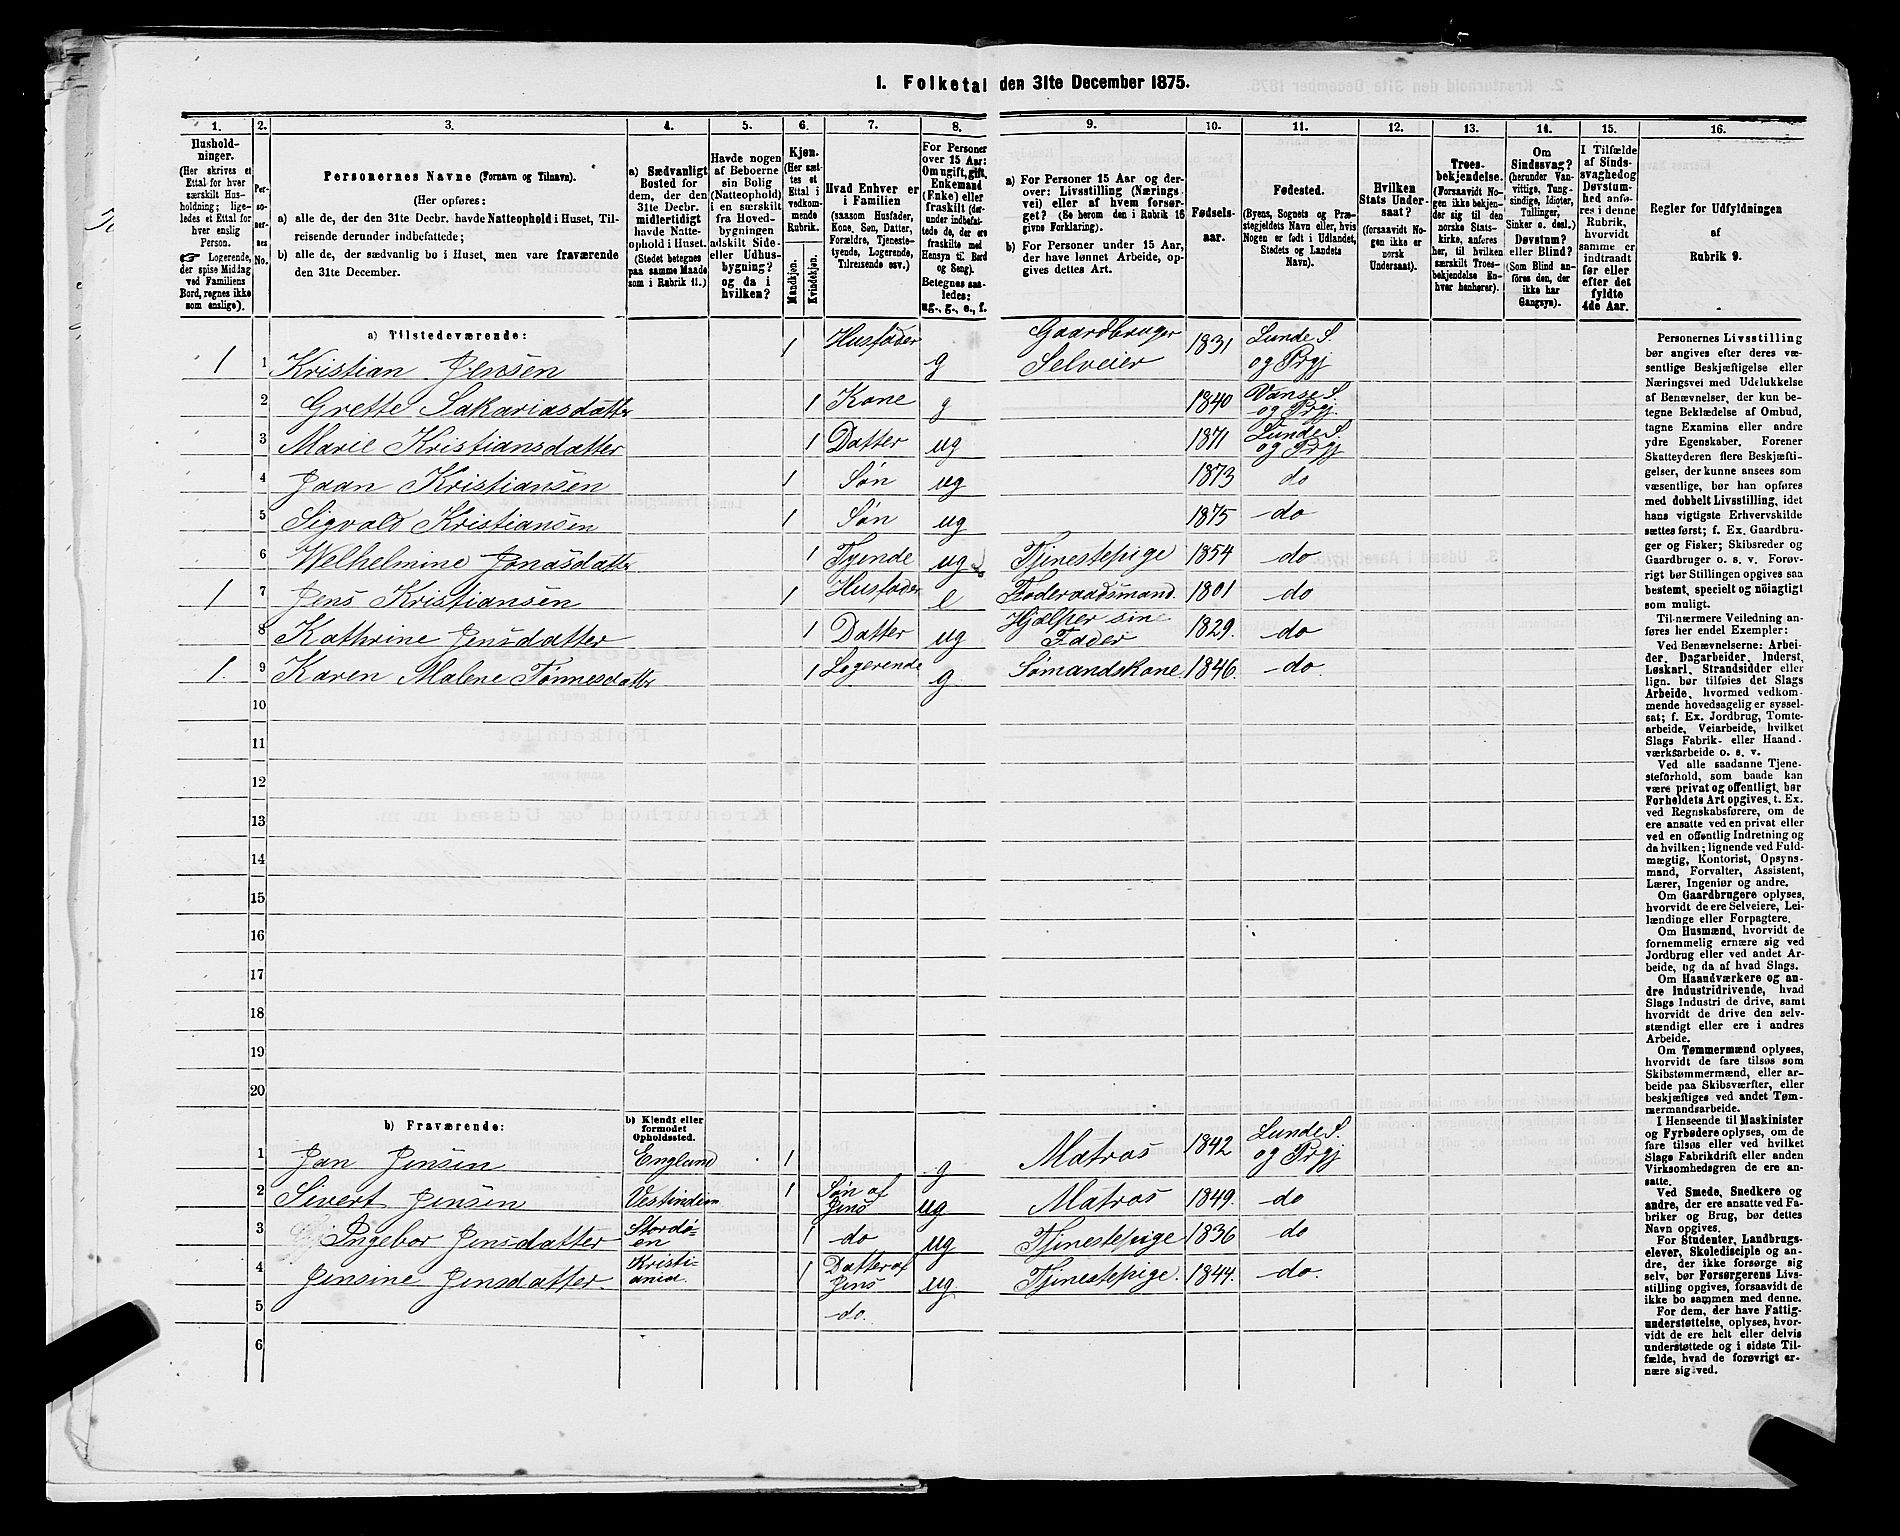 1. Folketal den 31te December 1875.
1. 2. 3. 4. 5. 6. 7. 8. 9. 10. 11. 12. 13. 14. 15. 16.
Hushold-
ninger.
(Her skrives et
Ettal for hver
særskilt Hus-
holdning; lige-
ledes et Ettal for
hver enslig
Person.
☞ Logerende,
der spise Middag
ved Familiens
Bord, regnes ikke
som enslige).
Per-
so-
ner-
nes
No.
Personernes Navne (Fornavn og Tilnavn).
(Her opføres:
a) alle de, der den 31te Decbr. havde Natteophold i Huset, Til-
reisende derunder indbefattede;
b) alle de, der sædvanlig bo i Huset, men vare fraværende
den 31te December.
a) Sædvanligt
Bosted for
dem, der den
31te Decbr.
midlertidigt
havde Natte-
ophold i Huset.
(Stedet betegnes
paa samme Maade
som i Rubrik 11.)
Havde nogen
af Beboerne
sin Bolig
(Natteophold)
i en særskilt
fra Hoved-
bygningen
adskilt Side-
eller Udhus-
bygning?
og da i
hvilken?
Kjøn.
(Her sæt-
tes et
Ettal i
vedkom-
mende
Rubrik.
Mandkjøn.
Kvindekjøn.
Hvad Enhver er
i Familien
(saasom Husfader,
Kone, Søn, Datter,
Forældre, Tjeneste-
tyende, Logerende,
Tilreisende osv.)
For Personer
over 15 Aar:
Om ugift, gift,
Enkemand
(Enke) eller
fraskilt (der-
under indbefat-
tede de, der ere
fraskilte med
Hensyn til Bord
og Seng).
Betegnes saa-
ledes:
ug., g., e., f.
a) For Personer 15 Aar og der-
over: Livsstilling (Nærings-
vei) eller af hvem forsør-
get? (Se herom den i Rubrik 16
givne Forklaring).
b) For Personer under 15 Aar,
der have lønnet Arbeide, op-
gives dettes Art.
Fødsels-
aar.
Fødested.
(Byens, Sognets og Præ-
stegjeldets Navn eller, hvis
Nogen er født i Udlandet,
Stedets og Landets
Navn).
Hvilken
Stats Under-
saat?
(forsaavidt No-
gen ikke er
norsk
Undersaat).
Troes-
bekjendelse.
(Forsaavidt No-
gen ikke bekjen-
der sig til den
norske Stats-
kirke, anføres
her, til hvilken
særskilt Troes-
bekjendelse En-
hver henhører).
Om
Sindssvag?
(herunder Van-
vittige, Tung-
sindige, Idioter,
Tullinger,
Sinker o. desl.)
Døvstum?
eller Blind?
(Som Blind an-
føres den, der
ikke har
Gangsyn).
I Tilfælde
af Sinds-
svaghed og
Døvstum-
hed anfø-
res i denne
Rubrik,
hvorvidt
samme er
indtraadt
før eller
efter det
fyldte
4de Aar.
Regler for Udfyldningen
af
Rubrik 9.
a) Tilstedeværende:
1 1 Kristian Jensen 1 Husfader g Gaardbruger Selveier 1831 Lunde S. og Prgj
2 Grette Sakariasdatter 1 Kone g 1840 Vanse S. og Prgj.
3 Marie Kristiansdatter 1 Datter ug 1871 Lunde S. og Prgj
4 Jaan Kristiansen 1 Søn ug 1873 do
5 Sigvald Kristiansen 1 Søn ug 1875 do
6 Welhelmine Jonasdatter 1 Tyende ug Tjinestepige 1854 do
1 7 Jens Kristiansen 1 Husfader e Føderaadsmand 1801 do
8 Kathrine Jensdatter 1 Datter ug Hjælper sine Fader 1829. do
1. 9 Karen Malene Tønnesdatter 1 Logerende g Sømandskone 1846. do.
10
11
12
13
14
15
16
17
18
19
20
b) Fraværende:
b) Kjendt eller
formodet
Opholdssted.
1 Jan Jensen England 1 g Matros 1842 Lunde S. og Prgj
2 Sivert Jensen Vestindien 1 Søn af Jens ug Matros 1849. do
3 Ingebor Jensdatter Stordøen 1 do ug Tjinestepige 1836 do
4 Jensine Jensdatter Kristiania 1 Datter af Jens ug Tjinestepige 1844. do.
5 do.
6
Personernes Livsstilling
bør angives efter deres væ-
sentlige Beskjæftigelse eller
Næringsvei med Udelukkelse
af Benævnelser, der kun be-
tegne Beklædelse af Ombud,
tagne Examina eller andre
ydre Egenskaber. Forener
Skatteyderen flere Beskjæfti-
gelser, der kunne ansees som
væsentlige, bør han opføres
med dobbelt Livsstilling, idet
hans vigtigste Erhvervskilde
sættes først; f. Ex. Gaardbru-
ger og Fisker; Skibsreder og
Gaardbruger o. s. v. Forøv-
rigt bør Stillingen opgives saa
bestemt, specielt og nöiagtigt
som muligt.
Til nærmere Veiledning an-
føres her endel Exempler:
Ved Benævnelserne: Arbei-
der, Dagarbeider, Inderst,
Løskarl, Strandsidder eller
lign. bør tilføies det Slags
Arbeide, hvormed vedkom-
mende hovedsagelig er syssel-
sat; f. Ex. Jordbrug, Tomte-
arbeide, Veiarbeide, hvilket
Slags Fabrik- eller Haand-
værksarbeide o. s. v.
Ved alle saadanne Tjene-
steforhold, som baade kan
være privat og offentligt, bør
Forholdets Art opgives, t. Ex.
ved Regnskabsførere, om de
ere ansatte ved en privat eller
ved en offentlig Indretning og
da hvilken; lignende ved Fuld-
mægtig, Kontorist, Opsyns-
mand, Forvalter, Assistent,
Lærer, Ingeniør og andre.
Om Gaardbrugere oplyses,
hvorvidt de ere Selveiere, Lei-
lændinge eller Forpagtere.
Om Husmænd, hvorvidt de
fornemmelig ernære sig ved
Jordbrug eller ved andet Ar-
beide, og da af hvad Slags.
Om Haandværkere og an-
dre Industridrivende, hvad
Slags Industri de drive, samt
hvorvidt de drive den selv-
stændigt eller ere i andres
Arbeide.
Om Tømmermænd oplyses,
hvorvidt de fare tilsøs som
Skibstømmermænd, eller ar-
beide paa Skibsværfter, eller
beskjæftiges ved andet Tøm-
mermandsarbeide.
I Henseende til Maskinister
og Fyrbødere oplyses, om de
fare tilsøs eller ved hvilket
Slags Fabrikdrift eller anden
Virksomhedsgren de ere an-
satte.
Ved Smede, Snedkere og
andre, der ere ansatte ved Fa-
briker og Brug, bør dettes
Navn opgives.
For Studenter, Landbrugs-
elever, Skoledisciple og an-
dre, der ikke forsørge sig
selv, bør Forsørgerens Livs-
stilling opgives, forsaavidt de
ikke bo sammen med denne.
For dem, der have Fattig-
understøttelse, oplyses, hvor-
vidt de ere helt eller delvis
understøttede og i sidste Til-
fælde, hvad de forøvrigt er-
nære sig ved.